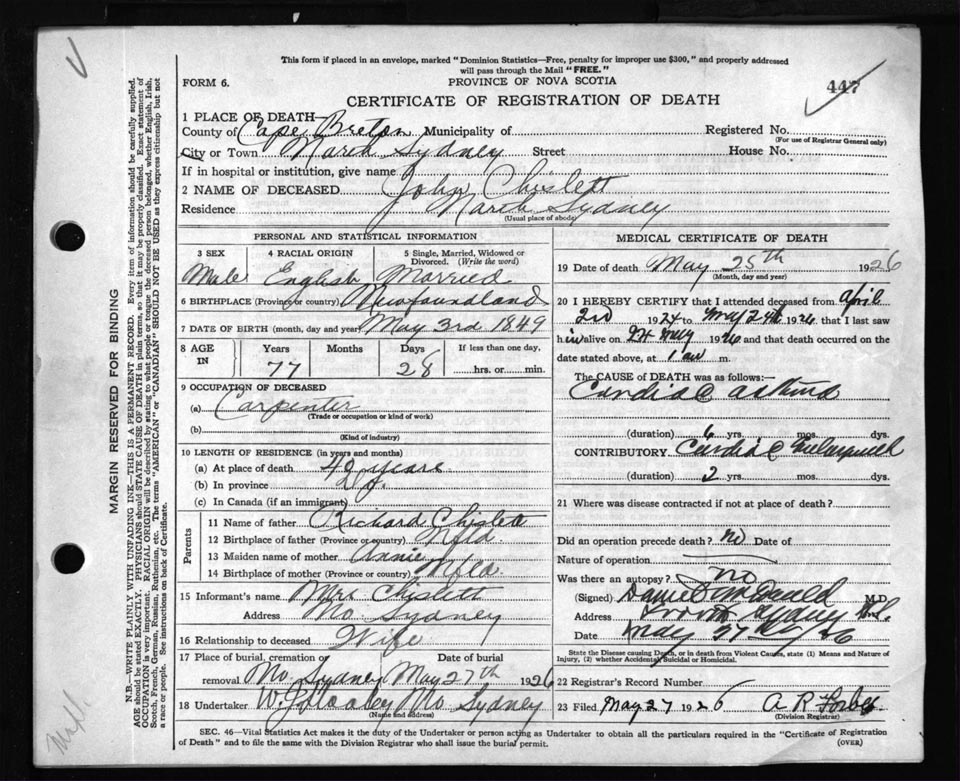 This form if placed in an envelope, marked "Dominion Statistics—Free, penalty for improper use $300," and properly addressed
will pass through the Mail "FREE."
FORM 6.
PROVINCE OF NOVA SCOTIA
447
CERTIFICATE OF REGISTRATION OF DEATH
1 PLACE OF DEATH—
County of Cape Breton Municipality of Registered No.
(For use of Registrar General only)
City or Town North Sydney Street House No.
If in hospital or institution, give name
2 NAME OF DECEASED John Chislett
Residence North Sydney
(Usual place of abode)
PERSONAL AND STATISTICAL INFORMATION
3 SEX 4 RACIAL ORIGIN 5 Single, Married, Widowed or
Divorced. (Write the word)
Male English Married
6 BIRTHPLACE (Province or country) Newfoundland
7 DATE OF BIRTH (month, day and year) May 3rd 1849
8 AGE IN Years Months Days If less than one day,
77 28 hrs. or min.
9 OCCUPATION OF DECEASED
(a) Carpenter
(Trade or occupation or kind of work)
(b)
(Kind of industry)
10 LENGTH OF RESIDENCE (in years and months)
(a) At place of death 40 years
(b) In province
(c) In Canada (if an immigrant)
Parents
11 Name of father Richard Chislett
12 Birthplace of father (Province or country) Nfld.
13 Maiden name of mother Annie
14 Birthplace of mother (Province or country) Nfld.
15 Informant's name Mrs Chislett
Address No. Sydney
16 Relationship to deceased Wife
17 Place of burial, cremation or Date of burial
removal No. Sydney May 27th 1926
18 Undertaker No Sydney
(Name and address)
MEDICAL CERTIFICATE OF DEATH
19 Date of death May 25th 1926
(Month, day and year)
20 I HEREBY CERTIFY that I attended deceased from April
2rd 1924 to May 24th 1926 that I last saw
him alive on 24 May 1926 and that death occurred on the
date stated above, at 1 am m.
The CAUSE of DEATH was as follows:—
Cardiac asthma
(duration) 6 yrs. mos. dys.
CONTRIBUTORY Cardiac
(duration) 2 yrs. mos. dys.
21 Where was disease contracted if not at place of death?
Did an operation precede death? no Date of
Nature of operation
Was there an autopsy? no
(Signed) Daniel McDonald M.D.
Address North Sydney N.S.
Date May 27
State the Disease causing Death, or in death from Violent Causes, state (1) Means and Nature of
Injury, (2) whether Accidental, Suicidal or Homicidal.
22 Registrar's Record Number
23 Filed May 27 1926 A R Forbes
(Division Registrar)
SEC. 46—Vital Statistics Act makes it the duty of the Undertaker or person acting as Undertaker to obtain all the particulars required in the "Certificate of Registration
of Death" and to file the same with the Division Registrar who shall issue the burial permit.
(OVER)
MARGIN RESERVED FOR BINDING
N.B.—WRITE PLAINLY WITH UNFADING INK—THIS IS A PERMANENT RECORD. Every item of information should be carefully supplied.
AGE should be stated EXACTLY. PHYSICIANS should STATE CAUSE OF DEATH in plain terms, so that it may be properly classified. Exact statement of
OCCUPATION is very important. RACIAL ORIGIN will be described by stating to what people or tongue the deceased person belonged, whether English, Irish,
Scotch, French, German, Russian, Ruthenian, etc. The terms "AMERICAN" or "CANADIAN" SHOULD NOT BE USED as they express citizenship but not
a race or people. See instructions on back of Certificate.